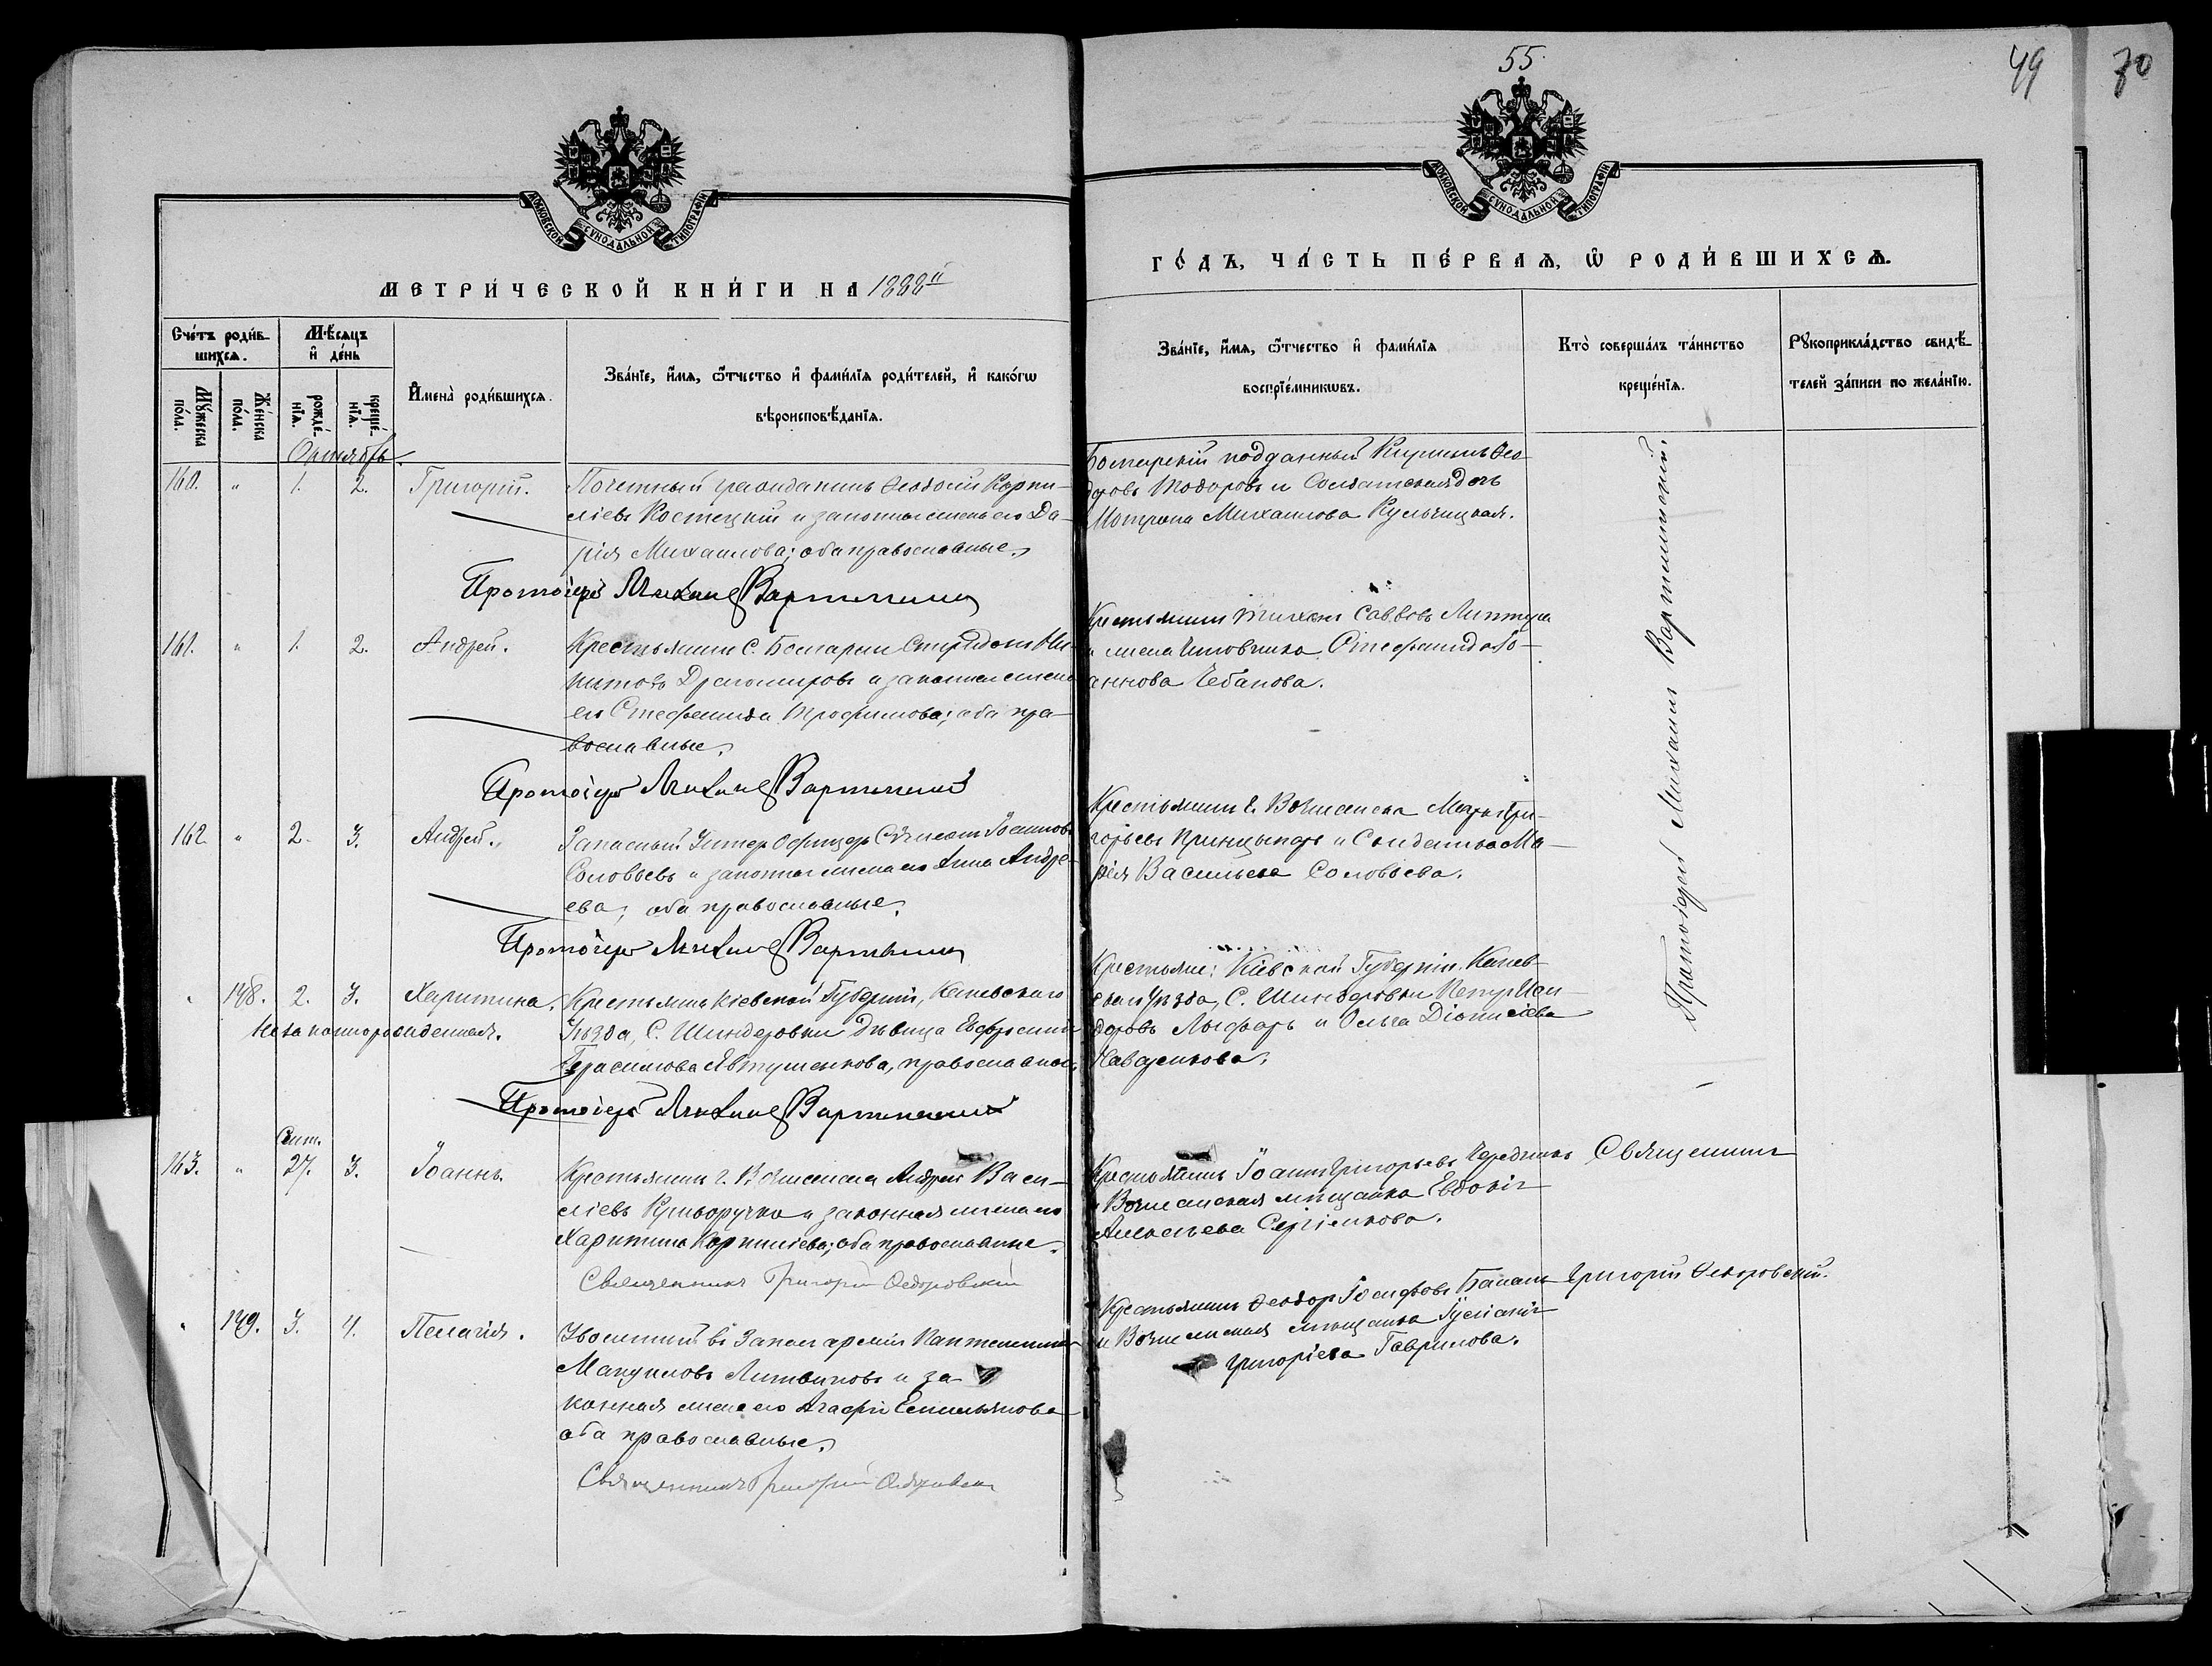 55
49
70
МОСКОВСКОЙ СѴНОДАЛЬНОЙ ТИПОГРАФІИ
МОСКОВСКОЙ СѴНОДАЛЬНОЙ ТИПОГРАФІИ
МЕТРИ́ЧЕСКОЙ КНИ́ГИ НА 1888й
ГО́ДЪ, ЧА́СТЬ ПЕ́РВАѦ, Ѡ РОДИ́ВШИХСѦ.
Сче́тъ роди́в-
шихсѧ.
Мꙋ́жеска по́ла.
Же́нска по́ла.
Мѣ́сѧцъ
и҆ де́нь
рожде́-
нїѧ.
креще́-
нїѧ.
И҆мена̀ роди́вшихсѧ.
Зва́нїе, и҆́мѧ, ѻ҆́тчество и҆ фами́лїѧ роди́телей, и҆ како́гѡ
вѣроисповѣ́данїѧ.
Зва́нїе, и҆́мѧ, ѻ҆́тчество и҆ фами́лїѧ
воспрїе́мникѡвъ.
Кто̀ соверша́лъ та́инство
креще́нїѧ.
Рꙋкоприкла́дство свидѣ́-
телей за́писи по жела́нїю.
Октябрь.
160. " 1. 2. Григорій.
Почетный гражданинъ Феодосій Корни-
ліевъ Костецкій и законная жена его Да-
рія Михаилова; оба православные.
Протоіерей Михаилъ Вартминскій
Болгарскій подданный Фео-
доровъ Тодоровъ и Солдатская дочь
Матрона Михаилова Кульчицкая.
161. " 1. 2. Андрей.
Крестьянинъ С. Болгарки Спиридонъ Ни-
китовъ Драгомировъ и законная жена
его Стефанида Трофимова; оба пра-
вославные.
Протоіерей Михаилъ Вартминскій
Крестьянинъ Тихонъ Саввовъ
и жена Стефанида Іо-
аннова Чебанова.
162. " 2. 3. Андрей.
Запасный Унтер Офицеръ Іоанновъ
Соловьевъ и законная жена его Анна Андре-
ева; оба православные.
Протоіерей Михаилъ Вартминскій
Крестьянинъ г. Вознесенска Маркъ Гри-
горьевъ и Солдатка Ма-
рія Васильева Соловьева.
" 148. 2. 3. Харитина.
Незаконнорожденная.
Крестьянка Кіевской Губерніи, Каневскаго
Уѣзда, С. Шиндеровки дѣвица Евфросинія
Герасимова Явтушенкова, православная.
Протоіерей Михаилъ Вартминскій
Крестьяне: Кіевской Губерніи, Канев-
скаго Уѣзда, С. Шиндеровки Петръ Иси-
доровъ и Ольга Діонисіева
Протоіерей Михаилъ Вартминскій.
Сент.
163. " 27. 3. Іоаннъ.
Крестьянинъ г. Вознесенска Андрей Васи-
ліевъ Криворучко и законная жена его
Харитина Корниліева; оба православные.
Священникъ Григорій Федоровскій
Крестьянинъ Іоаннъ Григорьевъ Чередникъ
и Вознесенская мѣщанка Евдокія
Алексѣева Сергіенкова.
Священникъ
Григорій Федоровскій.
" 149. 3. 4. Пелагія.
Уволенный въ Запасъ арміи Пантелеимонъ
Мануиловъ Литвиновъ и за-
конная жена его Агафія Емельянова
оба православные.
Священникъ Григорій Федоровскій
Крестьянинъ Феодоръ Іосифовъ
и Вознесенская мѣщанка Іуліанія
Григоріева Гаврилова.